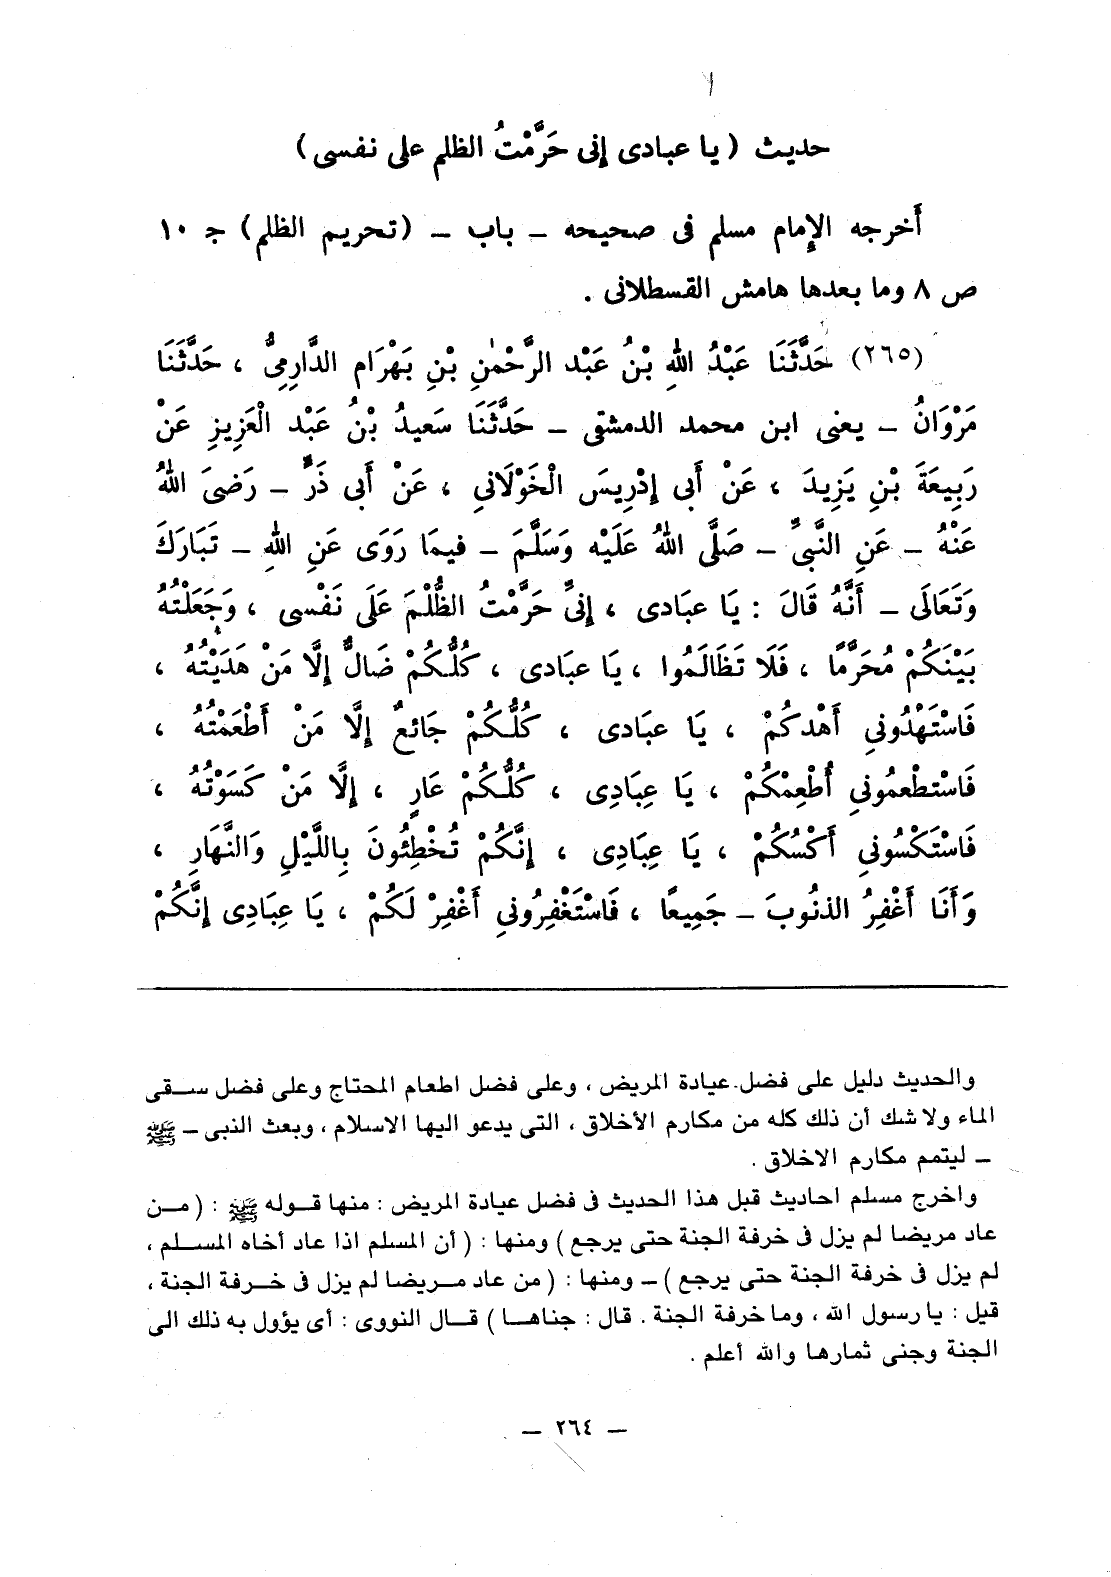 حديث ( يا عبادى إنى حَرَّمْتُ الظلم على نفسى )
أخرجه الإمام مسلم فى صحيحه – باب – (تحريم الظلم) جـ ١٠
ص ٨ وما بعدها هامش القسطلانى .
(٢٦٥) حَدَّثَنَا عَبْدُ اللهِ بْنُ عَبْد الرَّحْمٰنِ بْنِ بَهْرَام الدَّارِمِىُّ ، حَدَّثَنَا
مَرْوَانُ – يعنى ابن محمد الدمشقى – حَدَّثَنَا سَعيدُ بْنُ عَبْد الْعَزِيزِ عَنْ
رَبِيعَةَ بْنِ يَزِيدَ ، عَنْ أَبى إدْرِيسَ الْخَوْلَانىِ ، عَنْ أَبى ذَرٍّ – رَضىَ اللهُ
عَنْهُ – عَنِ النَّبىِّ – صَلَّى اللهُ عَلَيْه وَسَلَّمَ – فيمَا رَوَى عَنِ اللهِ – تَبَارَكَ
وَتَعَالَى – أَنَّهُ قَالَ : يَا عبَادى ، إنىِّ حَرَّمْتُ الظُّلْمَ عَلَى نَفْسى ، وَجَعَلْتُهُ
بَيْنَكُمْ مُحَرَّمًا ، فَلَا تَظَالَمُوا ، يَا عبَادى ، كُلُّكُمْ ضَالٌّ إلَّا مَنْ هَدَيْتُهُ ،
فَاسْتَهْدُونىِ أَهْدكُمْ ، يَا عبَادى ، كُلُّكُمْ جَائعٌ إلَّا مَنْ أَطْعَمْتُهُ ،
فَاسْتطْعمُونىِ أُطْعِمْكُمْ ، يَا عِبَادِى ، كُلُّكُمْ عَارٍ ، إلَّا مَنْ كَسَوْتُهُ ،
فَاسْتَكْسُونىِ أَكْسُكُمْ ، يَا عِبَادِى ، إنَّكُمْ تُخْطِئُونَ بِاللَّيْلِ وَالنَّهَارِ ،
وَأَنَا أَغْفِرُ الذنُوبَ – جَمِيعًا ، فَاسْتَغْفِرُونىِ أَغْفِرْ لَكُمْ ، يَا عِبَادِى إنَّكُمْ
والحديث دليل على فضل عيادة المريض ، وعلى فضل اطعام المحتاج وعلى فضل سقى
الماء ولا شك أن ذلك كله من مكارم الأخلاق ، التى يدعو اليها الاسلام ، وبعث النبى – ﷺ
– ليتمم مكارم الاخلاق .
واخرج مسلم احاديث قبل هذا الحديث فى فضل عيادة المريض : منها قوله ﷺ : ( من
عاد مريضا لم يزل فى خرفة الجنة حتى يرجع ) ومنها : ( أن المسلم اذا عاد أخاه المسلم ،
لم يزل فى خرفة الجنة حتى يرجع ) – ومنها : ( من عاد مريضا لم يزل فى خرفة الجنة ،
قيل : يا رسول الله ، وما خرفة الجنة . قال : جناها ) قال النووى : أى يؤول به ذلك الى
الجنة وجنى ثمارها والله أعلم .
– ٢٦٤ –